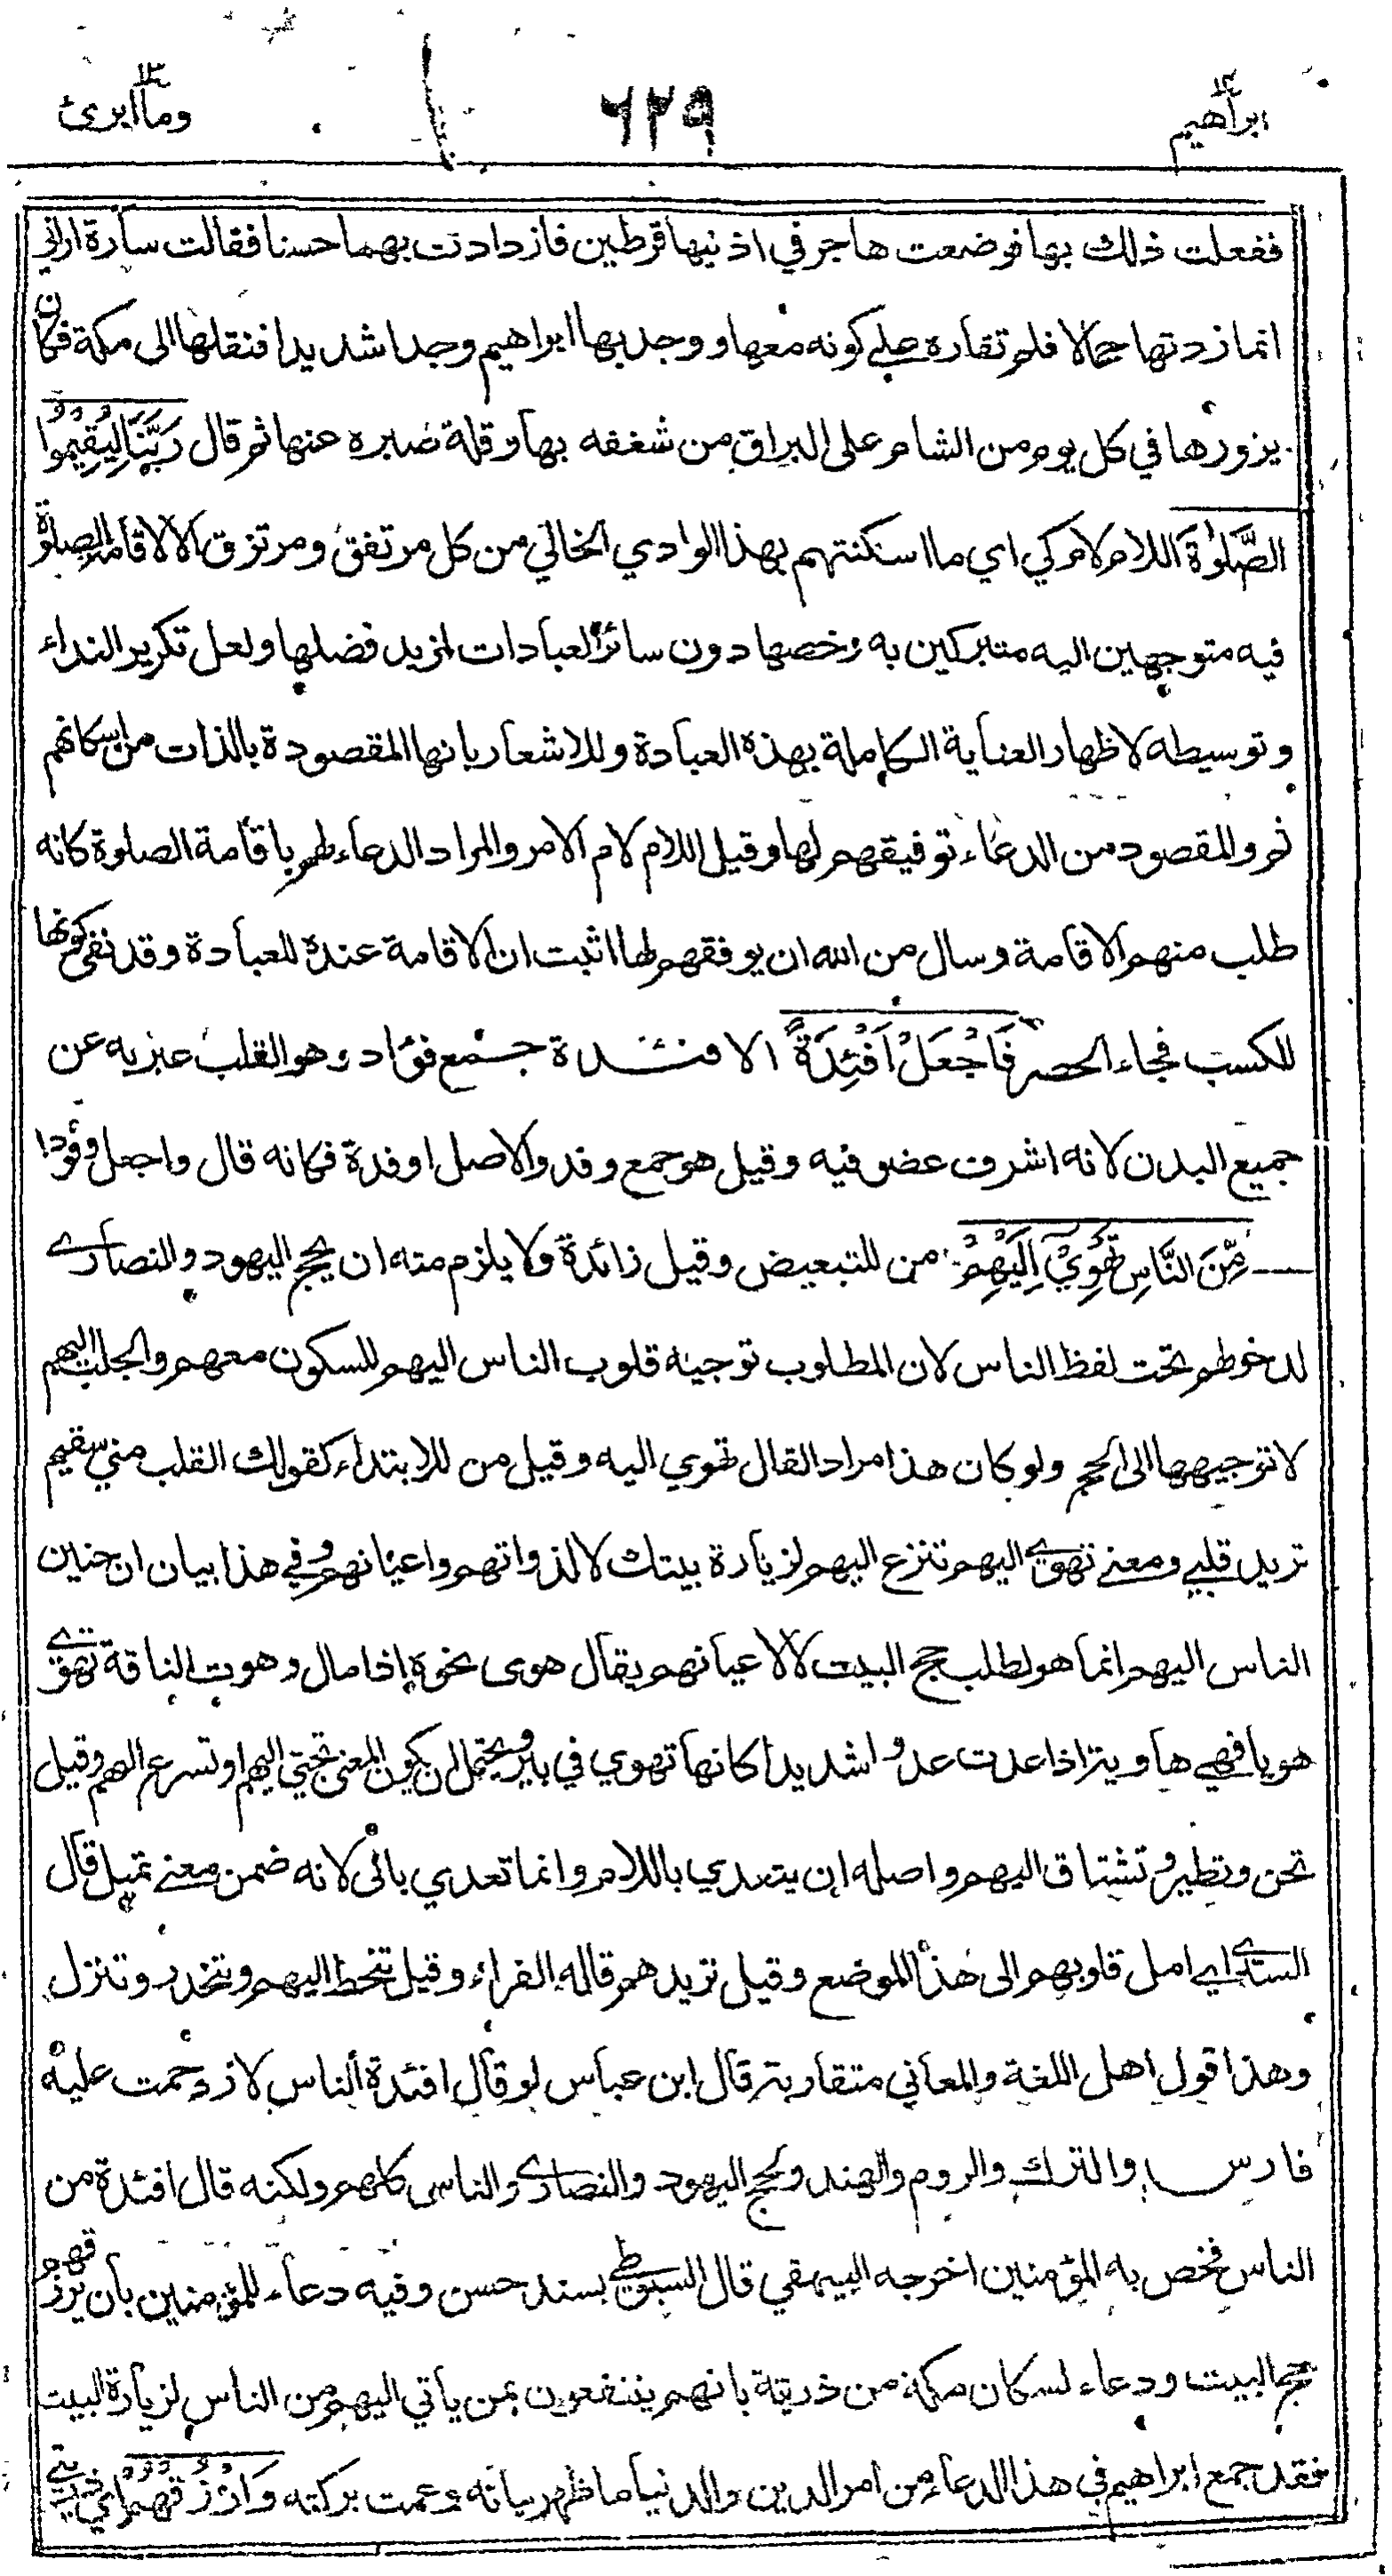 ابراهيم ١٤
٦٢٩
وما ابرئ ١٣
ففعلت ذلك بها فوضعت هاجر في اذنيها قرطين فازدادت بهما حسنا فقالت سارة اراني
انما زدتها جمالا فلم تقاره على كونه معها ووجد بها ابراهيم وجدا شديدا فنقلها الى مكة فكان
يزورها في كل يوم من الشام على البراق من شغفه بها وقلة صبره عنها ثم قال رَبَّنَا لِيُقِيمُوا
الصَّلٰوةَ اللام لام كي اي ما اسكنتهم بهذا الوادي الخالي من كل مرتفق ومرتزق الا لاقامة الصلوة
فيه متوجهين اليه متبركين به وخصها دون سائر العبادات لمزيد فضلها ولعل تكرير النداء
وتوسيطه لاظهار العناية الكاملة بهذه العبادة وللاشعار بانها المقصودة بالذات من اسكانهم
ثم والمقصود من الدعاء توفيقهم لها وقيل اللام لام الامر والمراد الدعاء لهم باقامة الصلوة كانه
طلب منهم الاقامة وسال من الله ان يوفقهم لها اثبت ان الاقامة عنده للعبادة وقد نفى كونها
للكسب فجاء الحصر فَاجْعَلْ اَفْئِدَةً الافئدة جمع فؤاد وهو القلب عبر به عن
جميع البدن لانه اشرف عضو فيه وقيل هو جمع وفد والاصل اوفدة فكانه قال واجعل وفودا
مِّنَ النَّاسِ تَهْوِيْ اِلَيْهِمْ من للتبعيض وقيل زائدة ولا يلزم منه ان يحج اليهود والنصارى
لدخولهم تحت لفظ الناس لان المطلوب توجيه قلوب الناس اليهم للسكون معهم والجلب اليهم
لا توجيهها الى الحج ولو كان هذا مرادا لقال تهوي اليه وقيل من للابتداء كقولك القلب مني سقيم
تريد قلبي ومعنى تهوي اليهم تنزع اليهم لزيارة بيتك لا لذواتهم واعيانهم وفي هذا بيان ان حنين
الناس اليهم انما هو لطلب حج البيت لا لاعيانهم يقال هوى نحوه اذا مال وهوت الناقة تهوي
هويا فهي هاوية اذا عدت عدوا شديدا كانها تهوي في بئر ويحتمل ان يكون المعنى تجيئ اليهم او تسرع اليهم وقيل
تحن وتطير وتشتاق اليهم واصله ان يتعدي باللام وانما تعدي بالى لانه ضمن معنى تميل قال
السدي اي امل قلوبهم الى هذا الموضع وقيل تريدهم قاله الفراء وقيل تنحط اليهم وتنحدر وتنزل
وهذا قول اهل اللغة والمعاني متقاربة قال ابن عباس لو قال افئدة الناس لازدحمت عليه
فارس والترك والروم والهند ولحج اليهود والنصارى والناس كلهم ولكنه قال افئدة من
الناس فخص به المؤمنين اخرجه البيهقي قال السيوطي بسند حسن وفيه دعاء للمؤمنين بان يرزقهم
حج البيت ودعاء لسكان مكة من ذريته بانهم ينتفعون بمن يأتي اليهم من الناس لزيارة البيت
فقد جمع ابراهيم في هذا الدعاء من امر الدين والدنيا ما ظهر بيانه وعمت بركته وَارْزُقْهُمْ اي ذريتي